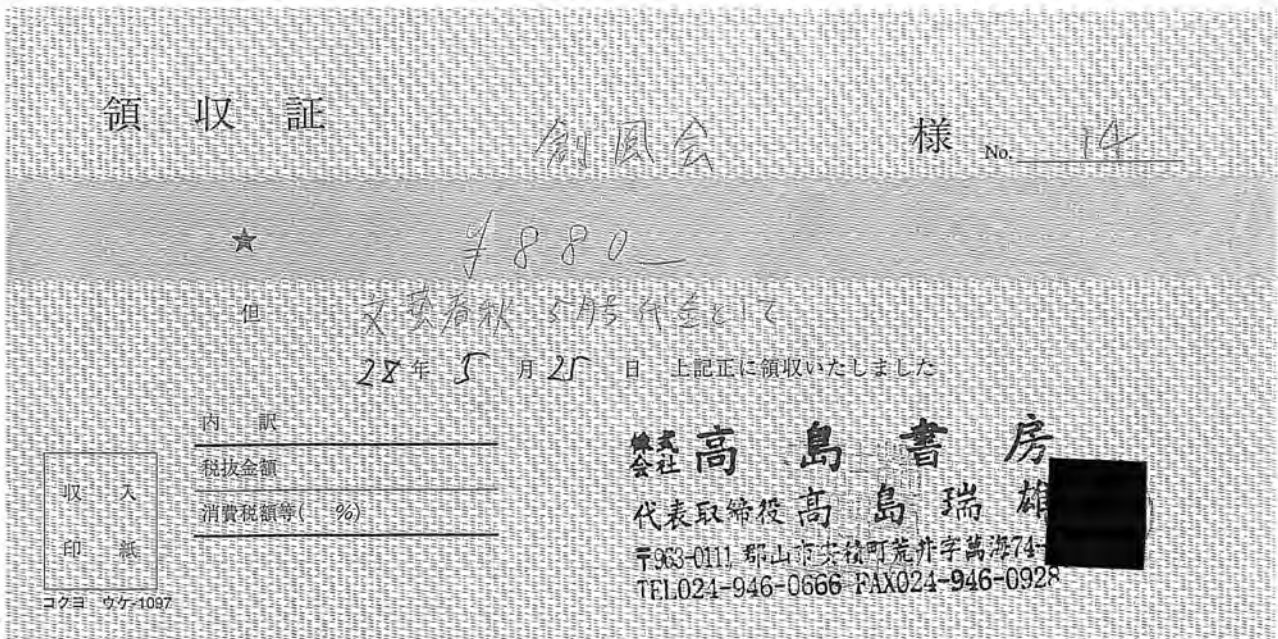 領収証 創風会 様 No. 14
★ ¥880
但 文藝春秋 5月号代金として
28年 5月25日 上記正に領収いたしました
内訳
税抜金額
消費税額等( %)
収入
印紙
コクヨ ウケ-1097
株式会社 高島書房
代表取締役 高島瑞雄
〒963-0111 郡山市安積町荒井字萬海74-
TEL024-946-0666 FAX024-946-0928